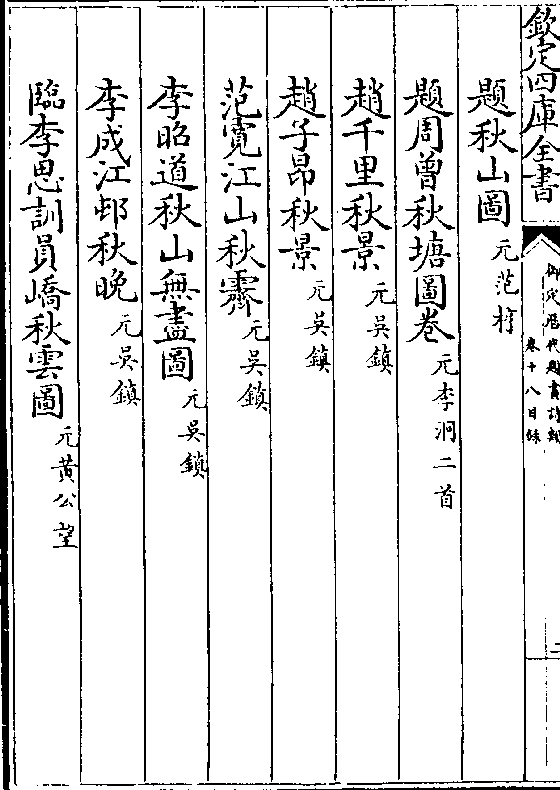 欽定四庫全書
御定歴代題畫詩類
卷十八目録
二
題秋山圖 元范梈
題周曾秋塘圖卷 元李泂二首
趙千里秋景 元吳鎮
趙子昂秋景 元吳鎮
范寛江山秋霽 元吳鎮
李昭道秋山無盡圖 元吳鎮
李成江邨秋晚 元吳鎮
臨李思訓員嶠秋雲圖 元黄公望